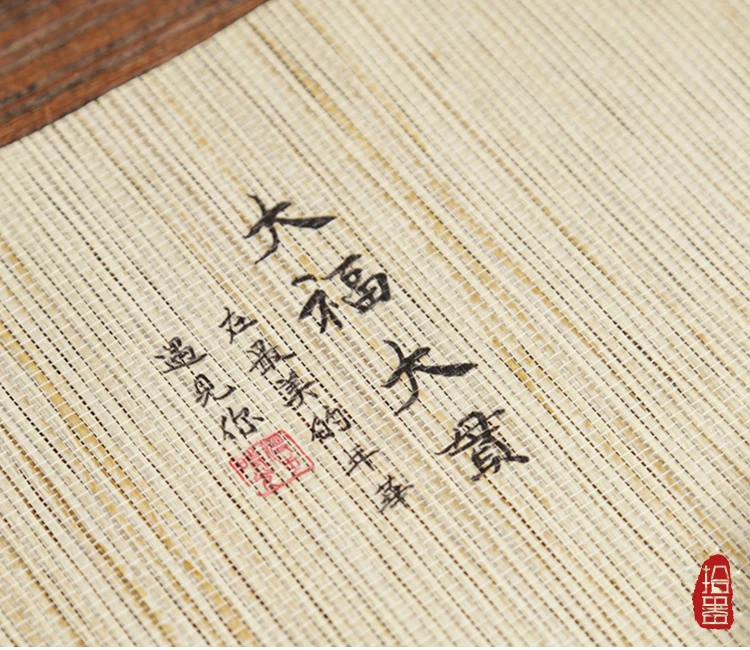 大福大貴
在最美的年華
遇见你
拾器